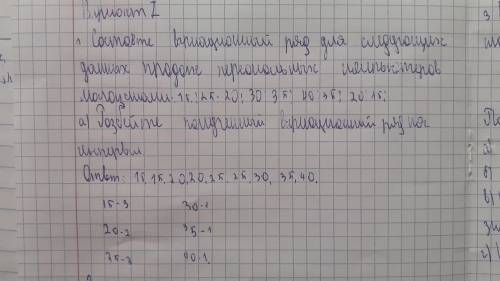 Вариант I
1. Составте вариационный ряд для следующих
данных продаж персональных компьютеров
магазинами: 15; 25; 20; 30 35; 40; 25; 20 15;
а) Разбейте полученный вариационный ряд на
интервалы
Ответ: 15, 15, 20, 20, 25, 25, 30, 35, 40.
15-3 30-1
20-2 35-1
25-2 40-1.